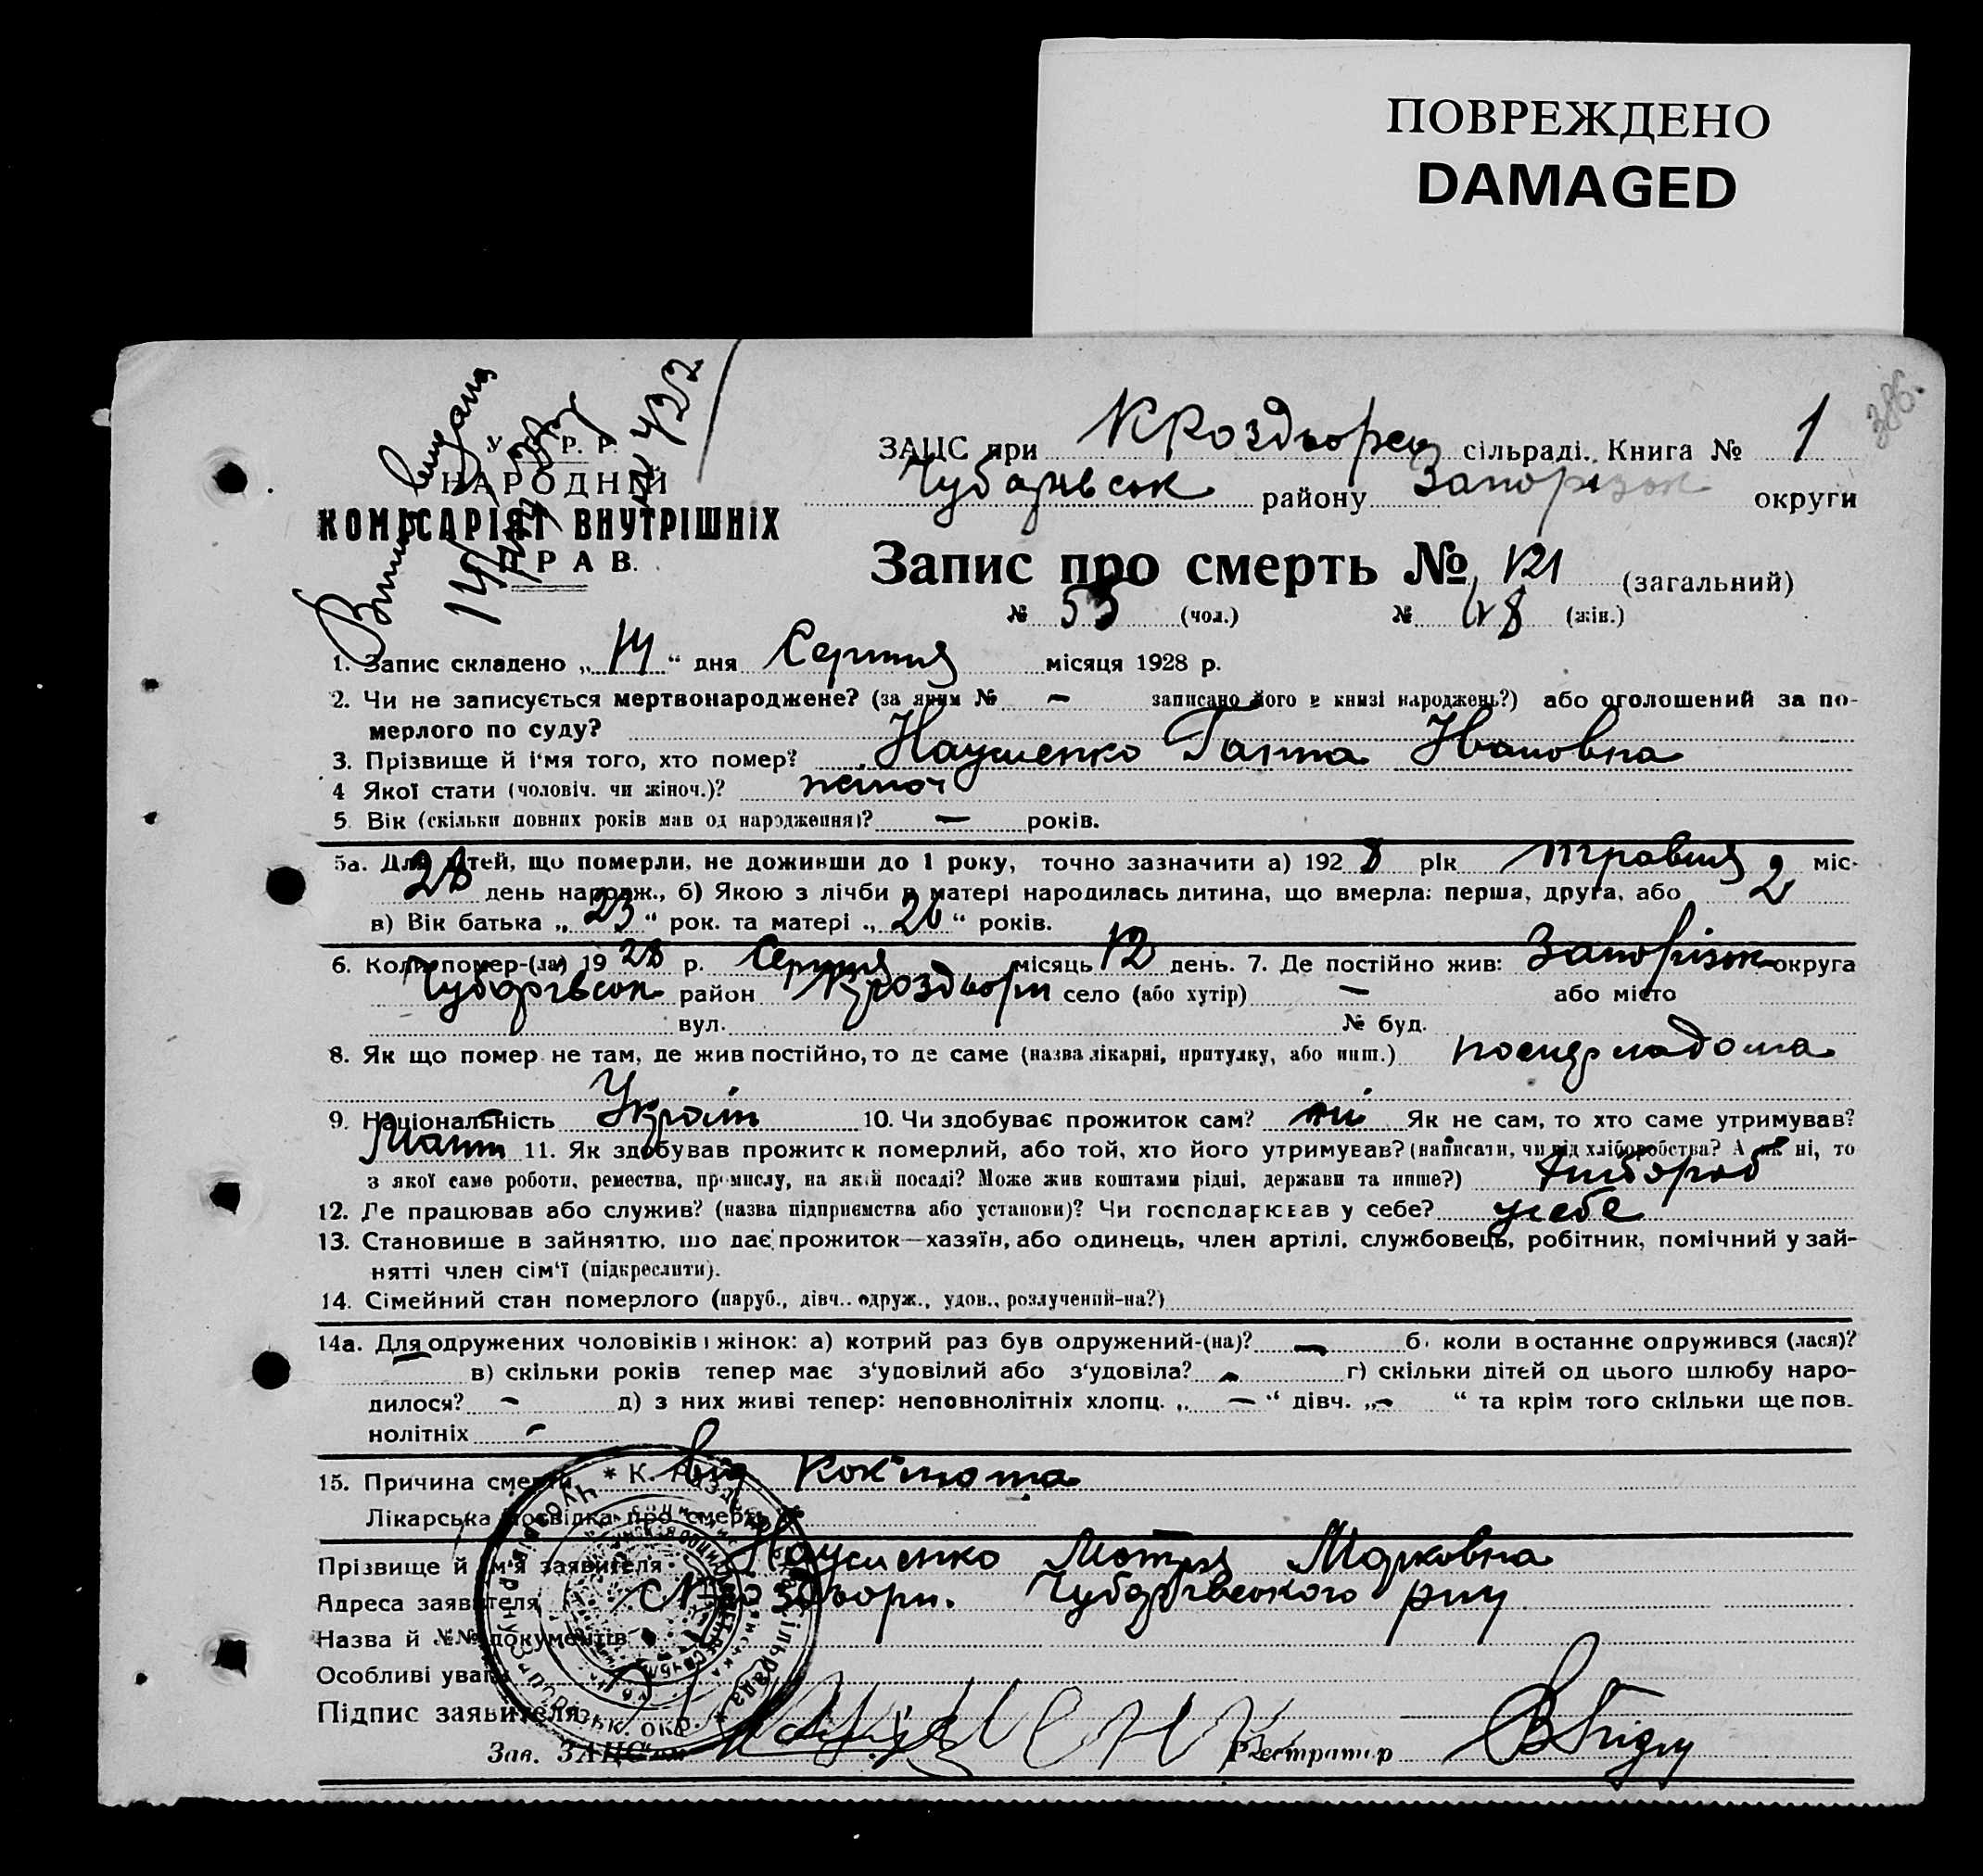 ПОВРЕЖДЕНО
DAMAGED
386.
У. С. Р. Р.
НАРОДНІЙ
КОМІСАРІЯТ ВНУТРІШНІХ
СПРАВ.
ЗАЦС при КРоздорсь сільраді. Книга № 1
Чубарівськ району Запорізьк округи
Запис про смерть № 121 (загальний)
№ 53 (чол.) № 68 (жін.)
1. Запис складено „ 14 “ дня Серпня місяця 1928 р.
2. Чи не записується мертвонароджене? (за яким № – записано його в книзі народжень?) або оголошений за по-
мерлого по суду?
3. Прізвище й ім'я того, хто помер? Науменко Ганна Ивановна
4 Якої стати (чоловіч. чи жіноч.)? жіноч
5. Вік (скільки повних років мав од народження)? – років.
5а. Для дітей, що померли, не доживши до 1 року, точно зазначити а) 192 8 рік травня міс-
28 день народж., б) Якою з лічби в матері народилась дитина, що вмерла: перша, друга, або 2
в) Вік батька „ 23 “ рок. та матері „ 26 “ років.
6. Коли помер-(ла) 19 28 р. Серпня місяць 12 день. 7. Де постійно жив: Запорізьк округа
Чубарівськ район КРоздори село (або хутір) – або місто
вул. № буд.
8. Як що помер не там, де жив постійно, то де саме (назва лікарні, притулку, або инш.) помер дома
9. Національність Україн 10. Чи здобуває прожиток сам? ні Як не сам, то хто саме утримував?
Мати 11. Як здобував прожиток померлий, або той, хто його утримував? (написати, чи від хліборобства? А як ні, то
з якої само роботи, ремества, промислу, на якій посаді? Може жив коштами рідні, держави та инше?) хлібороб
12. Де працював або служив? (назва підприємства або установи)? Чи господарював у себе? у себе
13. Становище в зайняттю, що дає прожиток—хазяїн, або одинець, член артілі, службовець, робітник, помічний у зай-
нятті член сім'ї (підкреслити).
14. Сімейний стан померлого (паруб., дівч.. одруж., удов., розлучений-на?)
14а. Для одружених чоловіків і жінок: а) котрий раз був одружений-(на)? – б) коли востаннє одружився (лася)?
– в) скільки років тепер має з'удовілий або з'удовіла? – г) скільки дітей од цього шлюбу наро-
дилося? – д) з них живі тепер: неповнолітніх хлопц. „ – “ дівч. „ – “ та крім того скільки ще пов-
нолітніх –
15. Причина смерти від Кок'люша
Лікарська посвідка про смерть
Прізвище й ім'я заявителя Науменко Мотря Марковна
Адреса заявителя с КРоздори. Чубарівського рну
Назва й №№ документів
Особливі уваги
Підпис заявителя
Зав. ЗАЦС'ом Реєстратор